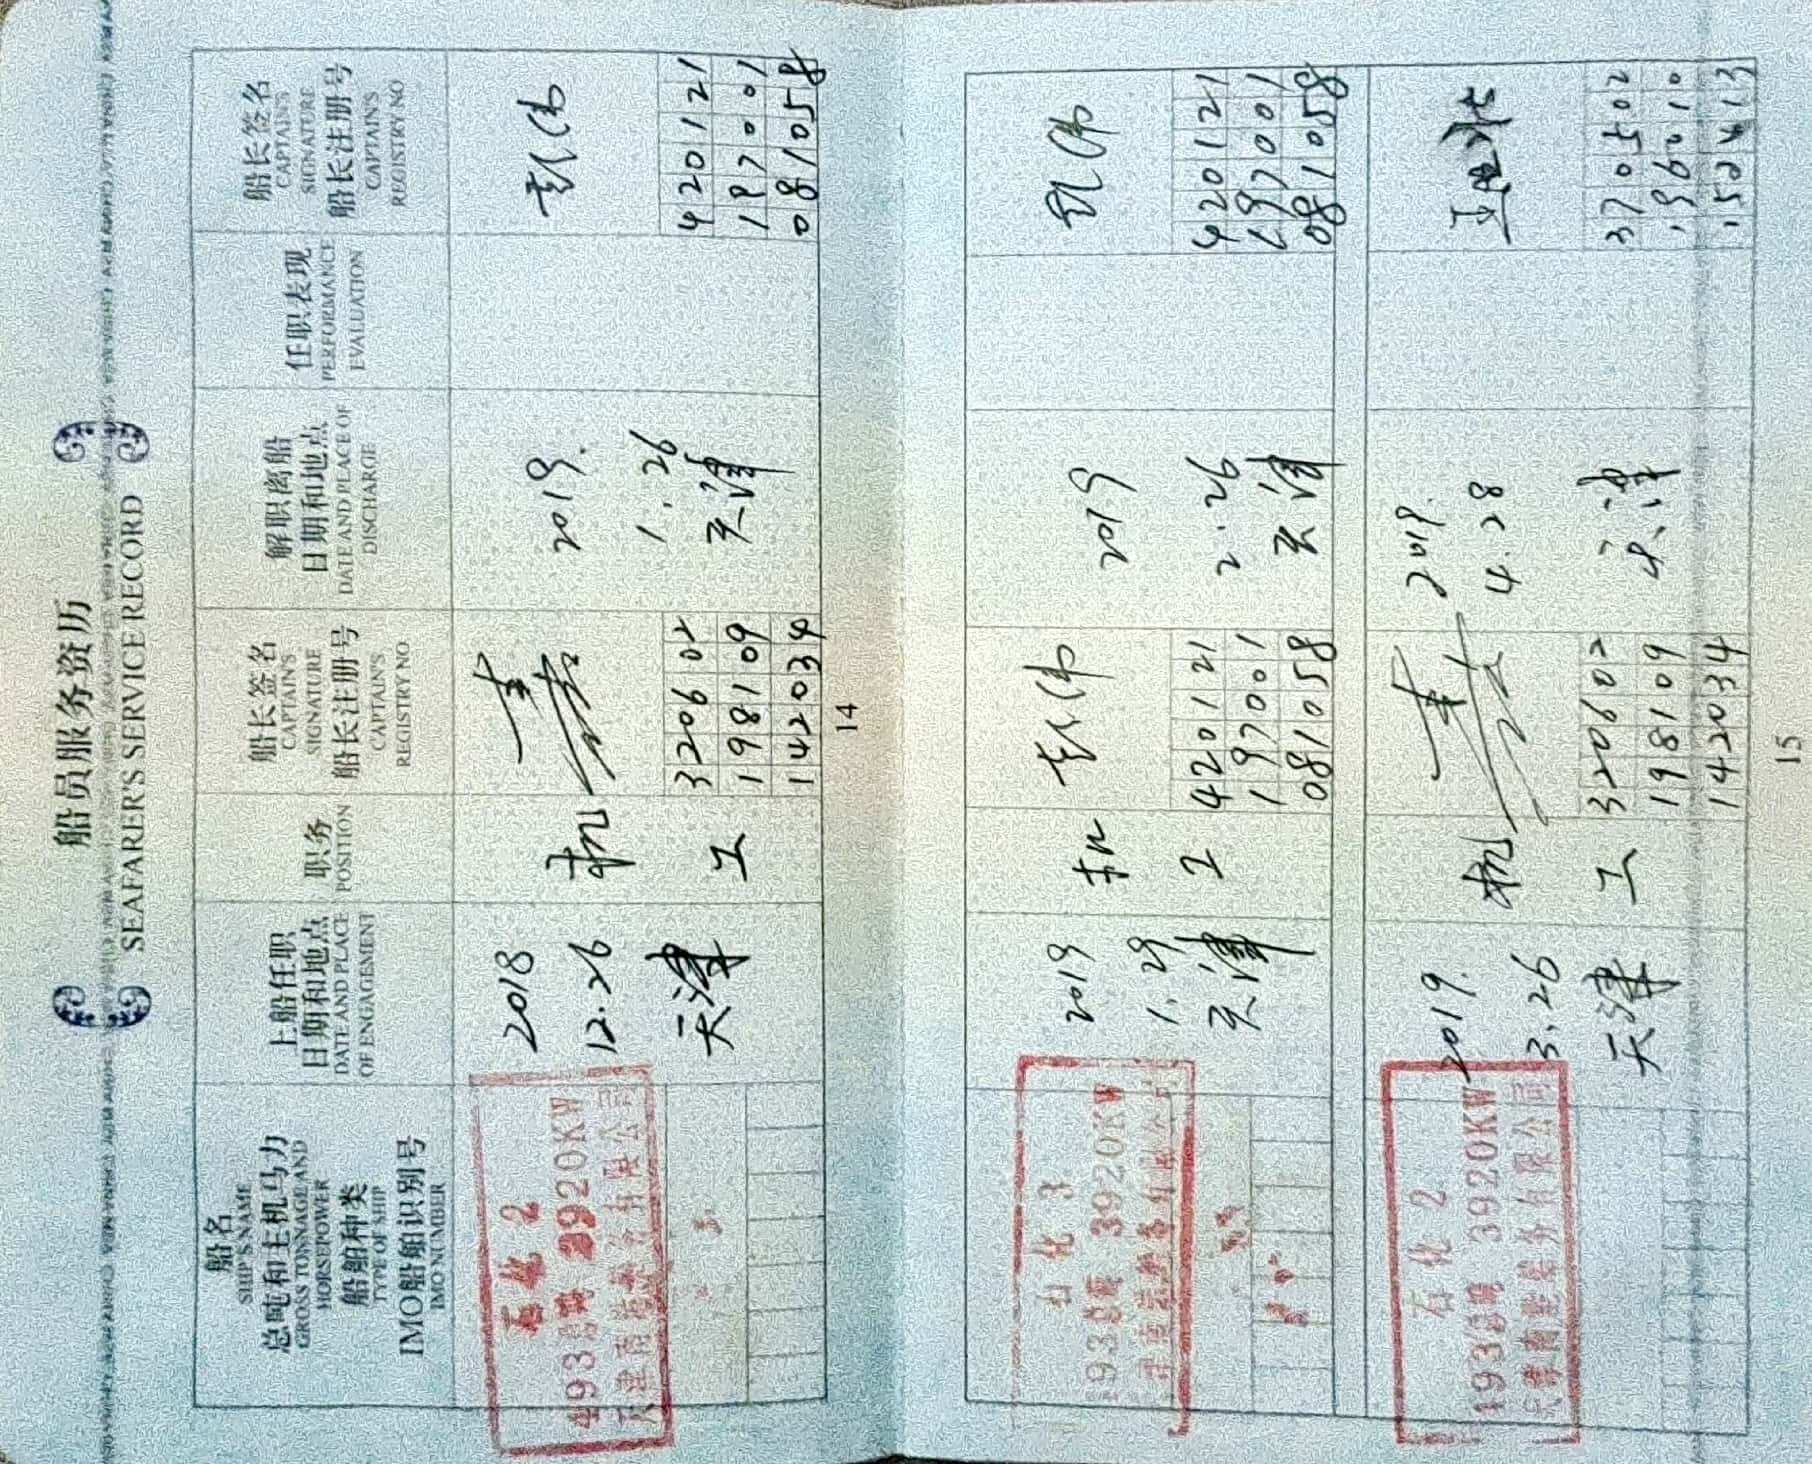 船员服务资历
SEAFARER'S SERVICE RECORD
船名
SHIP'S NAME
总吨和主机马力
GROSS TONNAGE AND
HORSEPOWER
船舶种类
TYPE OF SHIP
IMO船舶识别号
IMO NUMBER
上船任职
日期和地点
DATE AND PLACE
OF ENGAGEMENT
职务
POSITION
船长签名
CAPTAIN'S
SIGNATURE
船长注册号
CAPTAIN'S
REGISTRY NO
解职离船
日期和地点
DATE AND PLACE OF
DISCHARGE
任职表现
PERFORMANCE
EVALUATION
船长签名
CAPTAIN'S
SIGNATURE
船长注册号
CAPTAIN'S
REGISTRY NO
石化 2
493总吨 3920KW
2018
12.26
天津
机
工
320602
198109
142034
2019.
1.26
天津
420121
197001
081058
14
石化 3
493总吨 3920KW
2019
1.29
天津
机
工
420121
197001
081058
2019
2.26
天津
420121
197001
081058
石化 2
493总吨 3920KW
2019.
3.26
天津
机
工
320602
198109
142034
2019.
4.28
天津
370502
196010
152413
15